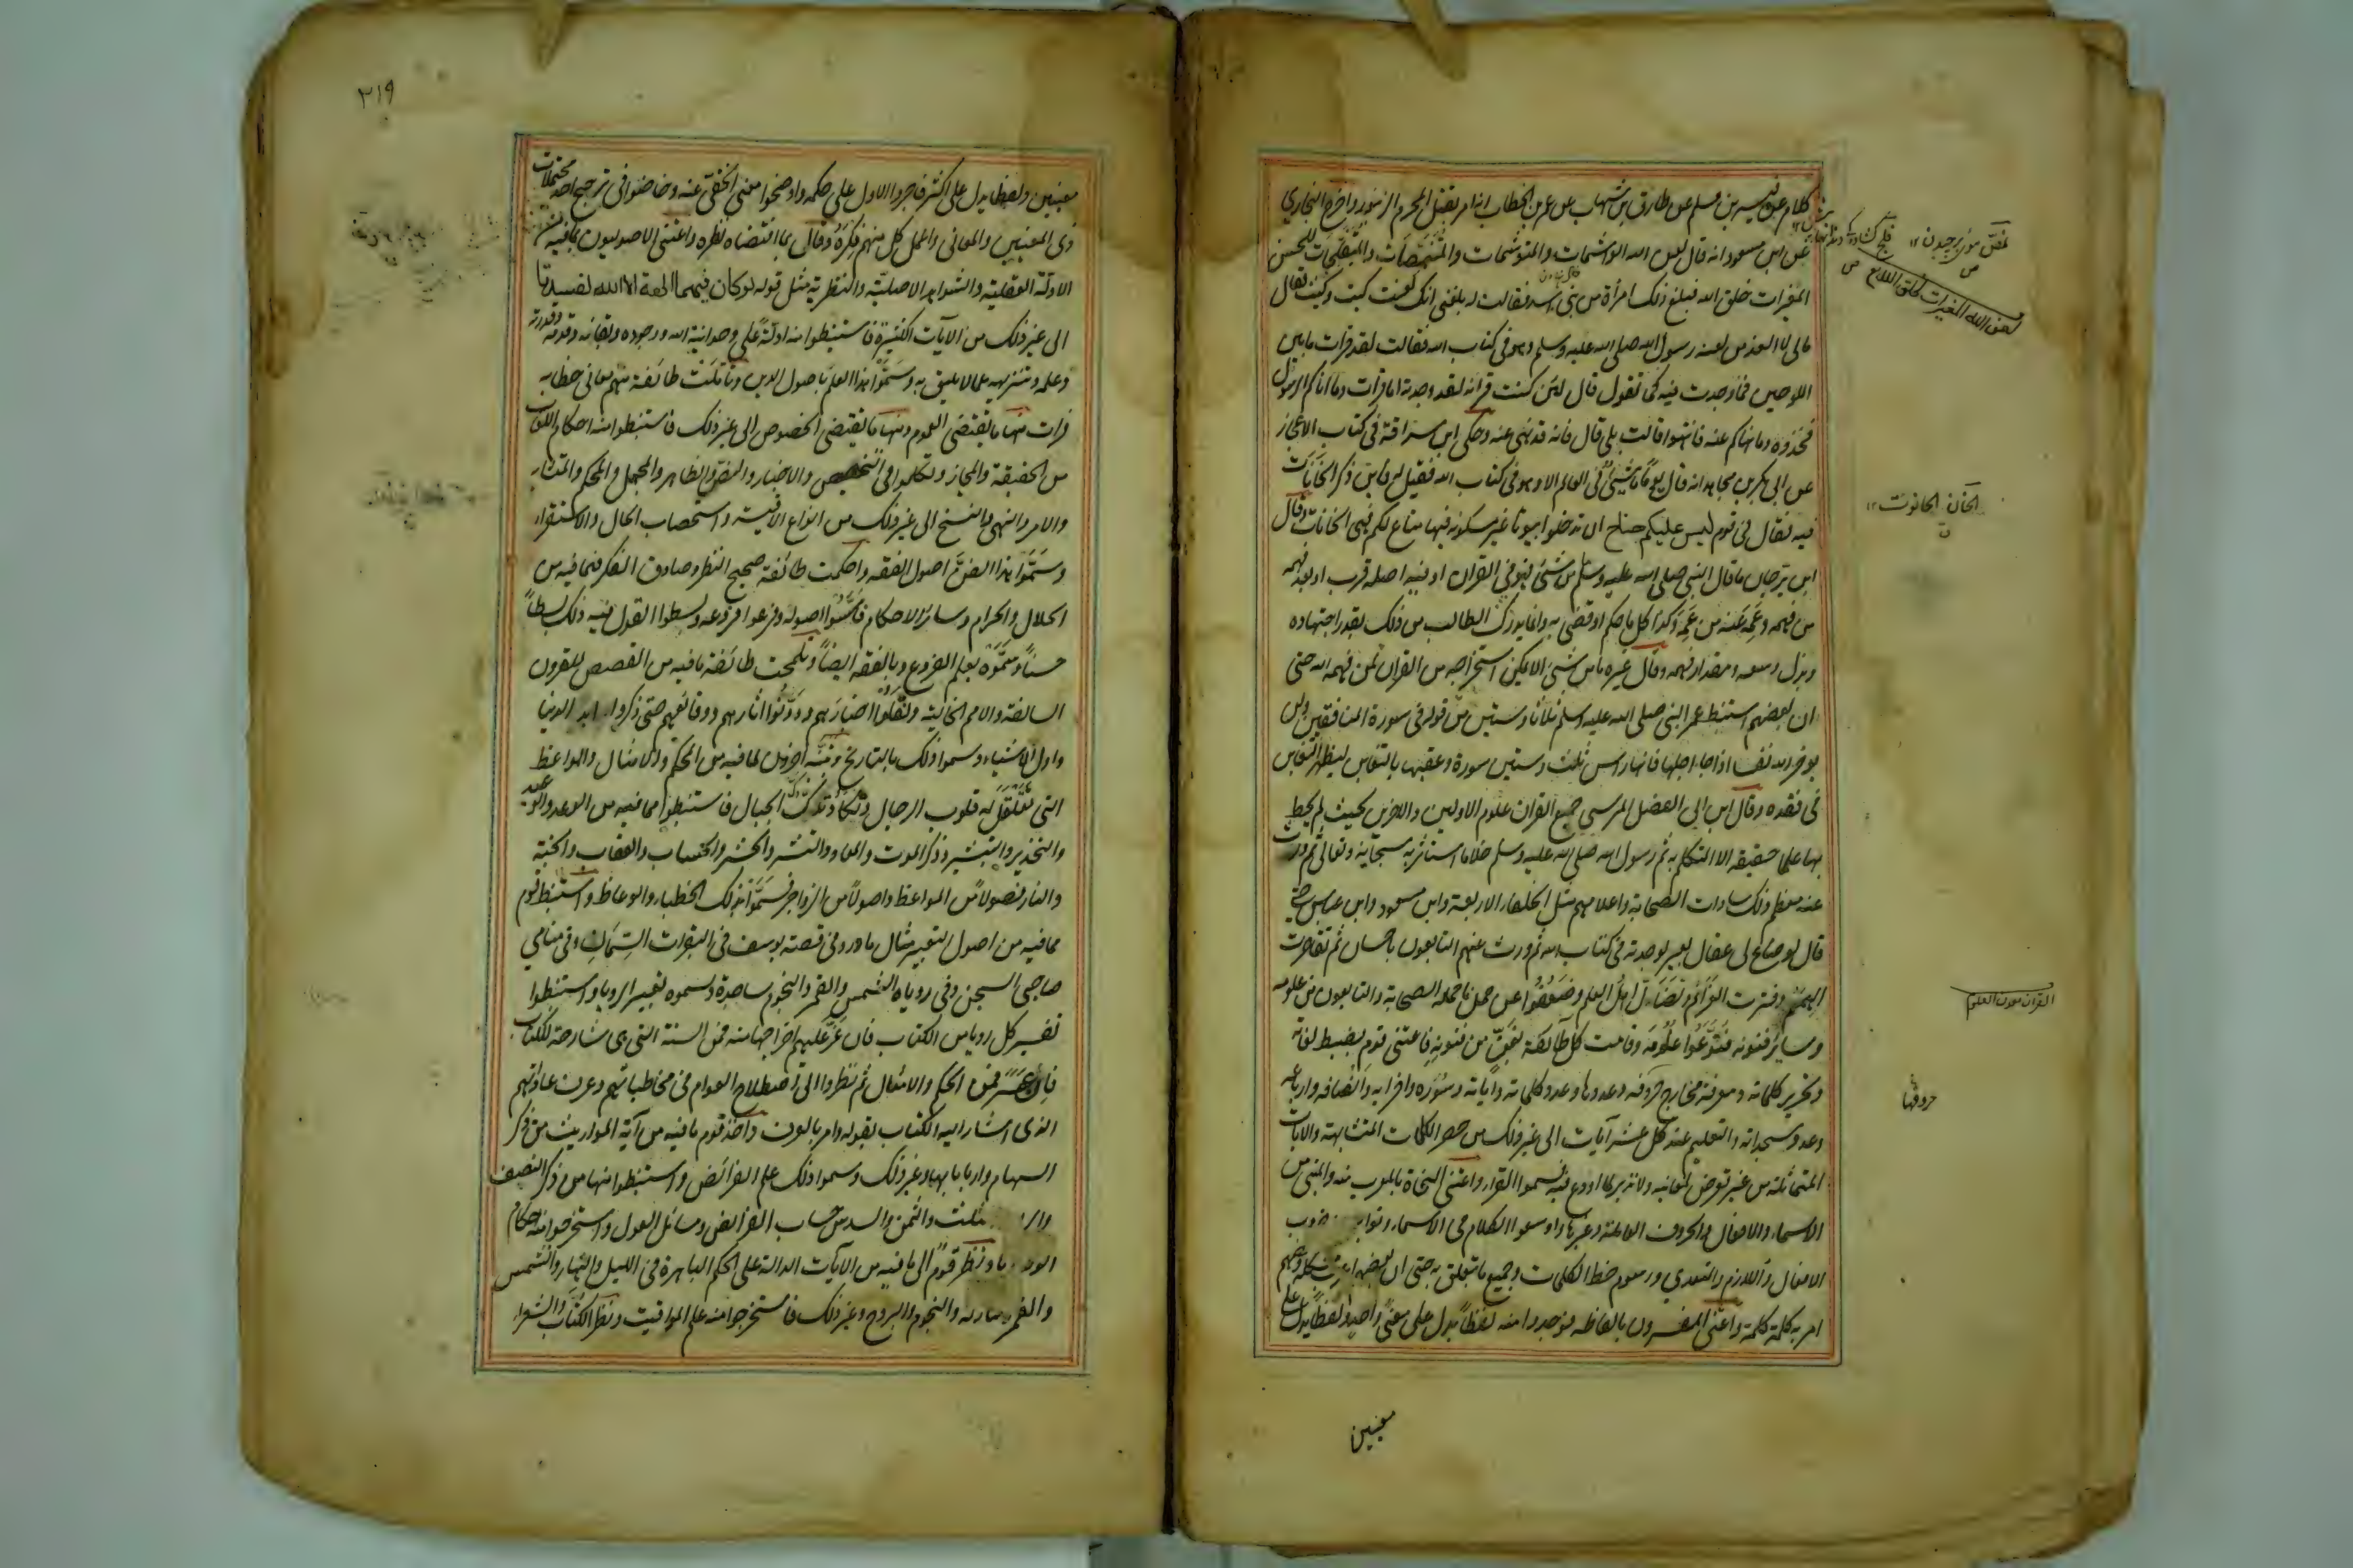 كدام عن قيس بن مسلم عن طارق بن شهاب عن عمر بن الخطاب انه امر بقتل المحرم الزنبور واخرج البخاري
عن ابن مسعود انه قال لعن الله الواشمات والمتوشمات والمتنمصات والمتفلجات للحسن
المغيرات خلق الله فبلغ ذلك امرأة من بني اسد فقالت له بلغني انك لعنت كيت وكيت فقال
مالي لا العن من لعنه رسول الله صلى الله عليه وسلم وهو في كتاب الله فقالت لقد قرات ما بين
اللوحين فما وجدت فيه كما تقول قال لئن كنت قراته لقد وجدته اما قرات وما اتاكم الرسول
فخذوه وما نهاكم عنه فانتهوا قالت بلى قال فانه قد نهى عنه وحكى ابن سراقة في كتاب الاعجاز
عن ابي بكر بن مجاهد انه قال يوما ما شيئ في العالم الا وهو في كتاب الله فقيل له فاين ذكر الخانات
فيه فقال في قوله ليس عليكم جناح ان تدخلوا بيوتا غير مسكونة فيها متاع لكم فهي الخانات وقال
ابن برجان ما قال النبي صلى الله عليه وسلم من شئ فهو في القران او فيه اصله قرب او بعد فهمه
من فهمه وعمه عنه من عمه وكذا كل ما حكم او قضى به وانما يدرك الطالب من ذلك بقدر اجتهاده
وبذل وسعه ومقدار فهمه وقال غيره ما من شئ الا يمكن استخراجه من القران لمن فهمه الله حتى
ان بعضهم استنبط عمر النبي صلى الله عليه وسلم ثلاثا وستين من قوله في سورة المنافقين ولن
يوخر الله نفسا اذا جاء اجلها فانها راس ثلث وستين سورة وعقبها بالتغابن ليظهر التغابن
في فقده وقال ابن ابي الفضل المرسي جمع القران علوم الاولين والاخرين بحيث لم يحط
بها علما حقيقة الا المتكلم به ثم رسول الله صلى الله عليه وسلم خلا ما استاثر به سبحانه وتعالى ثم ورث
عنه معظم ذلك سادات الصحابة واعلامهم مثل الخلفاء الاربعة وابن مسعود وابن عباس حتى
قال لو ضاع لي عقال بعير لوجدته في كتاب الله ثم ورث عنهم التابعون باحسان ثم تقاصرت
الهمم وفترت العزائم وتضاءل اهل العلم وضعفوا عن حمل ما حمله الصحابة والتابعون من علومه
وسائر فنونه فنوعوا علومه وقامت كل طائفة بفن من فنونه فاعتنى قوم بضبط لغاته
وتحرير كلماته ومعرفة مخارج حروفه وعددها وعدد كلماته وآياته وسوره واحزابه وانصافه وارباعه
وعدد سجداته والتعليم عند كل عشر آيات الى غير ذلك من حصر الكلمات المتشابهة والايات
المتماثلة من غير تعرض لمعانيه ولا تدبر لما اودع فيه فسموا القراء واعتنى النحاة بالمعرب منه والمبني من
الاسماء والافعال والحروف العاملة وغيرها واوسعوا الكلام في الاسماء وتوابعها وضروب
الافعال واللازم والمتعدي ورسوم خط الكلمات وجميع ما يتعلق به حتى ان بعضهم اعرب مشكله وبعضهم
اعربه كلمة كلمة واعتنى المفسرون بالفاظه فوجدوا منه لفظا يدل على معنى واحد ولفظا يدل على
معنيين
الخان الحانوت ١٢
لعن الله المغيرات لخلق الله
القرآن معدن العلوم
حروفها
٣١٩
معنيين ولفظا يدل على اكثر فاجروا الاول على حكمه واوضحوا معنى الخفي منه وخاضوا في ترجيح احد محتملات
ذي المعنيين والمعاني واعمل كل منهم فكره وقال بما اقتضاه نظره واعتنى الاصوليون بما فيه من
الادلة العقلية والشواهد الاصلية والنظرية مثل قوله لو كان فيهما الهة الا الله لفسدتا
الى غير ذلك من الآيات الكثيرة فاستنبطوا منه ادلة على وحدانية الله ووجوده وبقائه وقدمه وقدرته
وعلمه وتنزيهه عما لا يليق به وسموا هذا العلم باصول الدين وتاملت طائفة منهم معاني خطابه
فرات منها ما يقتضي العموم ومنها ما يقتضي الخصوص الى غير ذلك فاستنبطوا منه احكام اللغات
من الحقيقة والمجاز وتكلموا في التخصيص والاخبار والنص والظاهر والمجمل والمحكم والمتشابه
والامر والنهي والنسخ الى غير ذلك من انواع الاقيسة واستصحاب الحال والاستقراء
وسموا هذا الفن اصول الفقه واحكمت طائفة صحيح النظر وصادق الفكر فيما فيه من
الحلال والحرام وسائر الاحكام فاسسوا اصوله وفرعوا فروعه وبسطوا القول فيه ذلك بسطا
حسنا وسموه بعلم الفروع وبالفقه ايضا وتلمحت طائفة ما فيه من القصص للقرون
السالفة والامم الخالية ونقلوا اخبارهم ودونوا اثارهم ووقائعهم حتى ذكروا بدء الدنيا
واول الاشياء وسموا ذلك بالتاريخ وتنبه آخرون لما فيه من الحكم والامثال والمواعظ
التي تقلقل له قلوب الرجال وتكاد تدكدك الجبال فاستنبطوا مما فيه من الوعد والوعيد
والتحذير والتبشير وذكر الموت والمعاد والنشر والحشر والحساب والعقاب والجنة
والنار فصولا من المواعظ واصولا من الزواجر فسموا بذلك الخطباء والوعاظ واستنبط قوم
مما فيه من اصول التعبير مثل ما ورد في قصة يوسف في البقرات السمان وفي منامي
صاحبي السجن وفي روياه الشمس والقمر والنجوم ساجدة وسموه تعبير الرويا واستنبطوا
تفسير كل رويا من الكتاب فان عز عليهم اخراجها منه فمن السنة التي هي شارحة للكتاب
فان عسر فمن الحكم والامثال ثم نظروا الى اصطلاح العوام في مخاطباتهم وعرف عاداتهم
الذي اشار اليه الكتاب بقوله وامر بالعرف واخذ قوم ما فيه من آية المواريث من ذكر
السهام واربابها وغير ذلك وسموا ذلك علم الفرائض واستنبطوا منها من ذكر النصف
والثلث والثمن والسدس حساب الفرائض ومسائل العول واستخرجوا منه احكام
ونظر قوم الى ما فيه من الآيات الدالة على الحكم الباهرة في الليل والنهار والشمس
والقمر ومنازله والنجوم والبروج وغير ذلك فاستخرجوا منه علم المواقيت ونظر الكتاب والشعراء